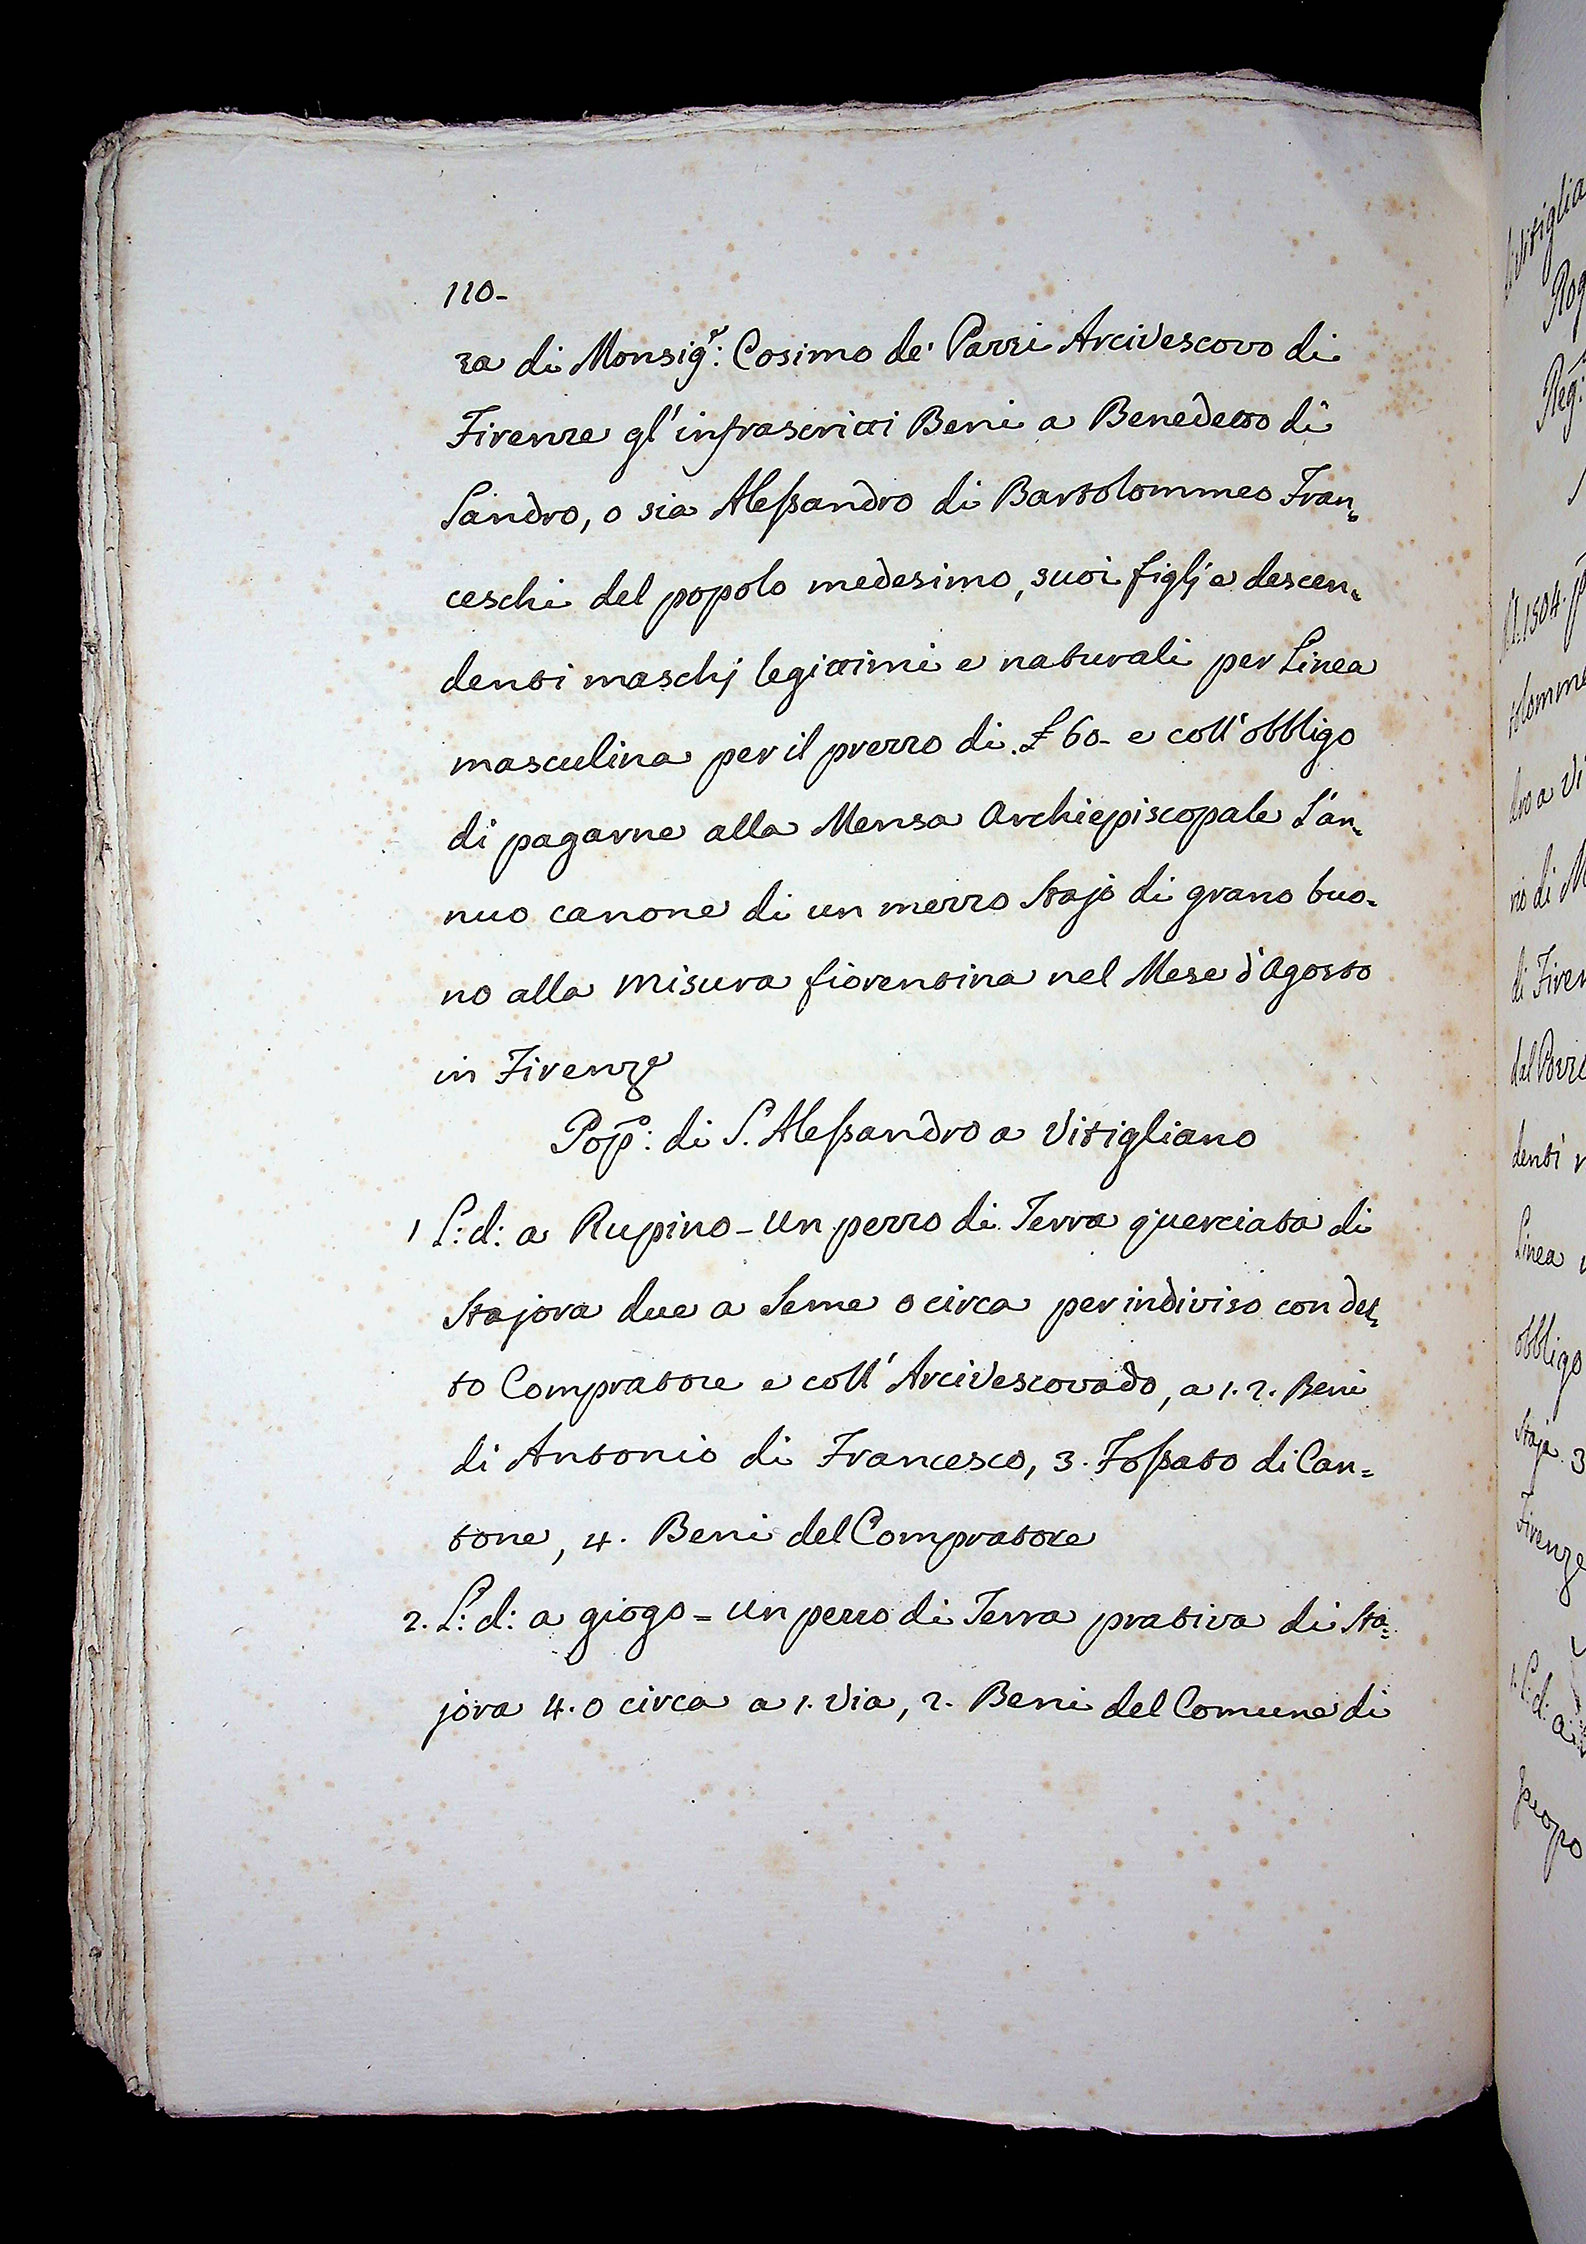 110-
za di Monsig.e: Cosimo de' Pazzi Arcivescovo di
Firenze gl'infrascritti Beni a Benedetto di
Sandro, o sia Alessandro di Bartolommeo Fran=
ceschi del popolo medesimo, suoi figlj e descen=
denti maschj legittimi e naturali per Linea
masculina per il prezzo di £ 60- e coll'obbligo
di pagarne alla Mensa Archiepiscopale l'an=
nuo canone di un mezzo Stajo di grano buo=
no alla misura fiorentina nel Mese d'Agosto
in Firenze
Pop.o: di S. Alessandro a Vitigliano
1 L: d: a Rupino - Un pezzo di Terra querciata di
Stajora due a Seme o circa per indiviso con det=
to Compratore e coll'Arcivescovado, a 1. 2. Beni
di Antonio di Francesco, 3. Fossato di Can=
tone, 4. Beni del Compratore
2. L: d: a giogo = Un pezzo di Terra prativa di Sta=
jora 4. o circa a 1. Via, 2. Beni del Comune di
Rog
Reg:
1504.
tolomme
dro a Vi
rio di M
di Firen
dal Pozzo
denti
Linea
obbligo
Staja 3
Firenze
1. L: d: a